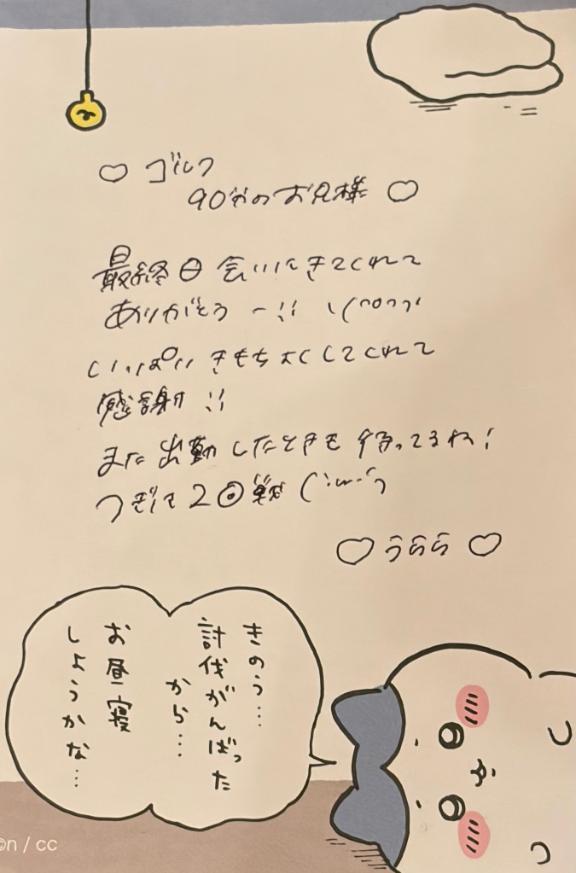 ♡ ゴルフ
90分のお兄様 ♡
最終日会いにきてくれて
ありがとうー!!
いっぱいきもちよくしてくれて
感謝!!
また出勤したときも待ってるね!
つぎも2回戦
♡ うらら ♡
きのう…
討伐がんばった
から…
お昼寝
しようかな…
n / cc